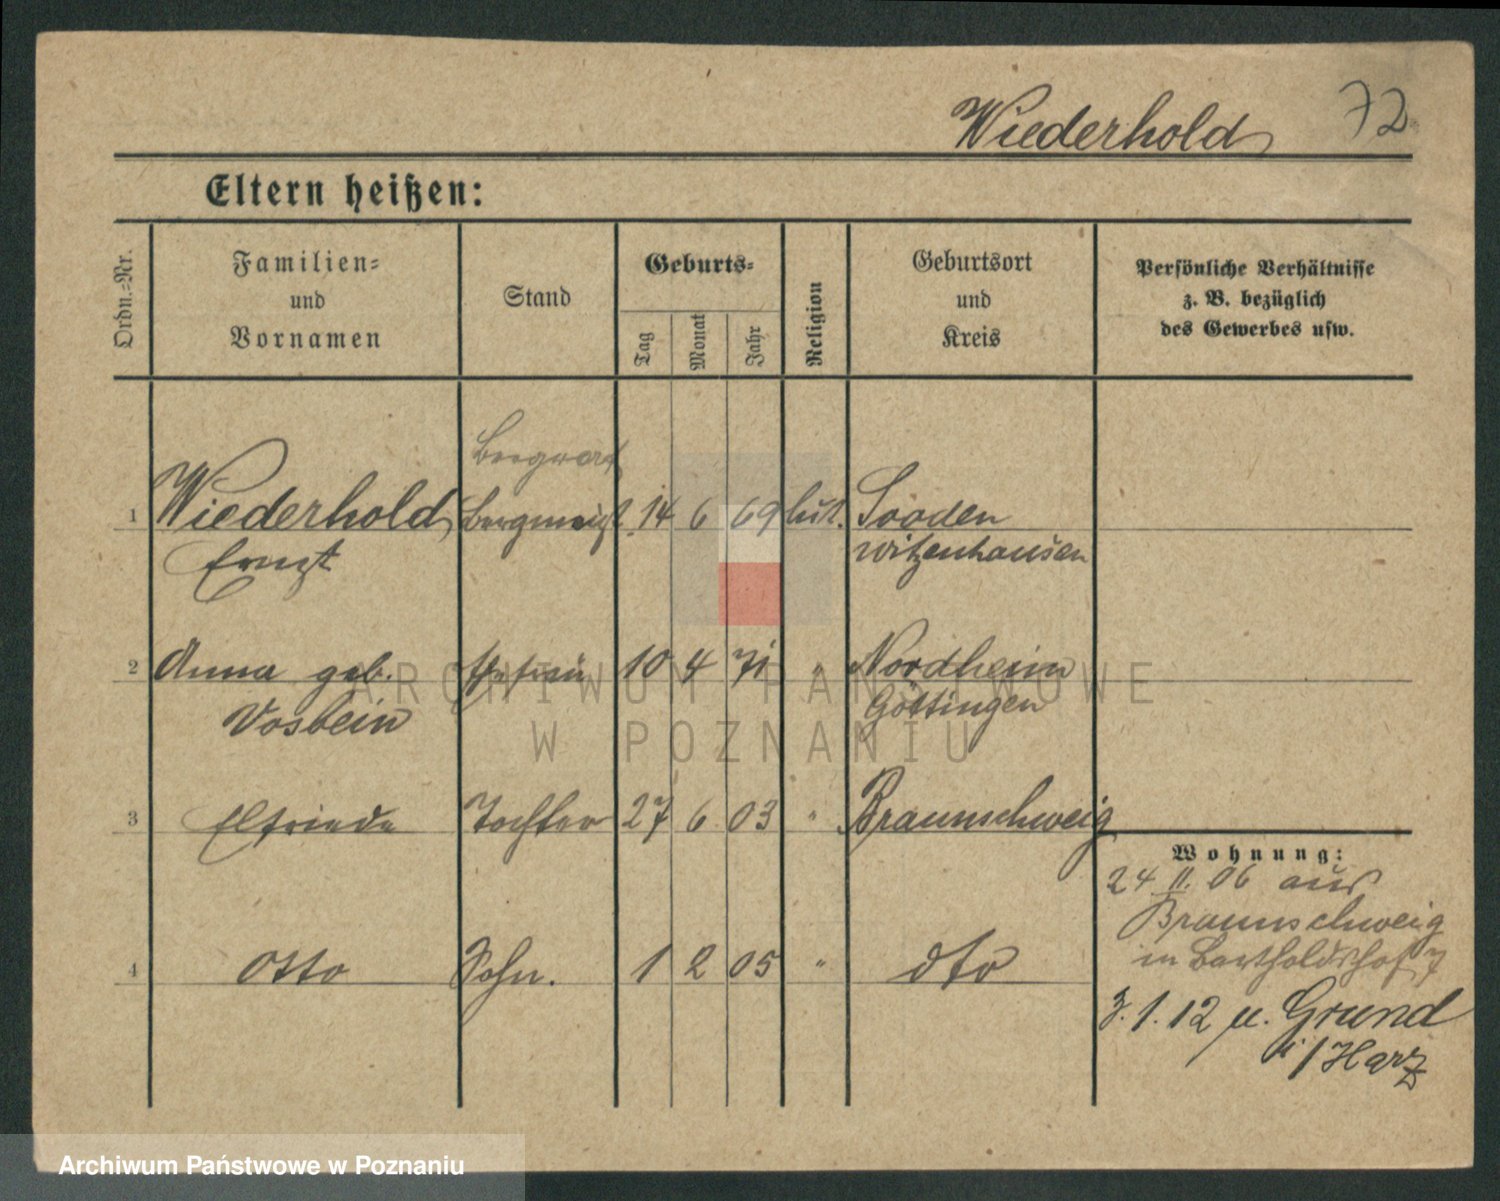 Wiederhold 72
Eltern heißen:
Ordn.-Nr.
Familien-
und
Vornamen
Stand
Geburts-
Tag
Monat
Jahr
Religion
Geburtsort
und
Kreis
Persönliche Verhältnisse
z. B. bezüglich
des Gewerbes usw.
1 Wiederhold 14 6 69 lut. Sooden
Ernst Witzenhausen
2 Anna geb. Ehefrau 10 4 71 " Nordheim
Vosbein Göttingen
3 Elfriede Tochter 27 6 03 " Braunschweig
4 Otto Sohn. 1 2 05 " dto
Wohnung:
24 II. 06 aus
Braunschweig
in Bartholdshof 7
3. 1. 12 n. Grund
i/Harz
ARCHIWUM PAŃSTWOWE
W POZNANIU
Archiwum Państwowe w Poznaniu